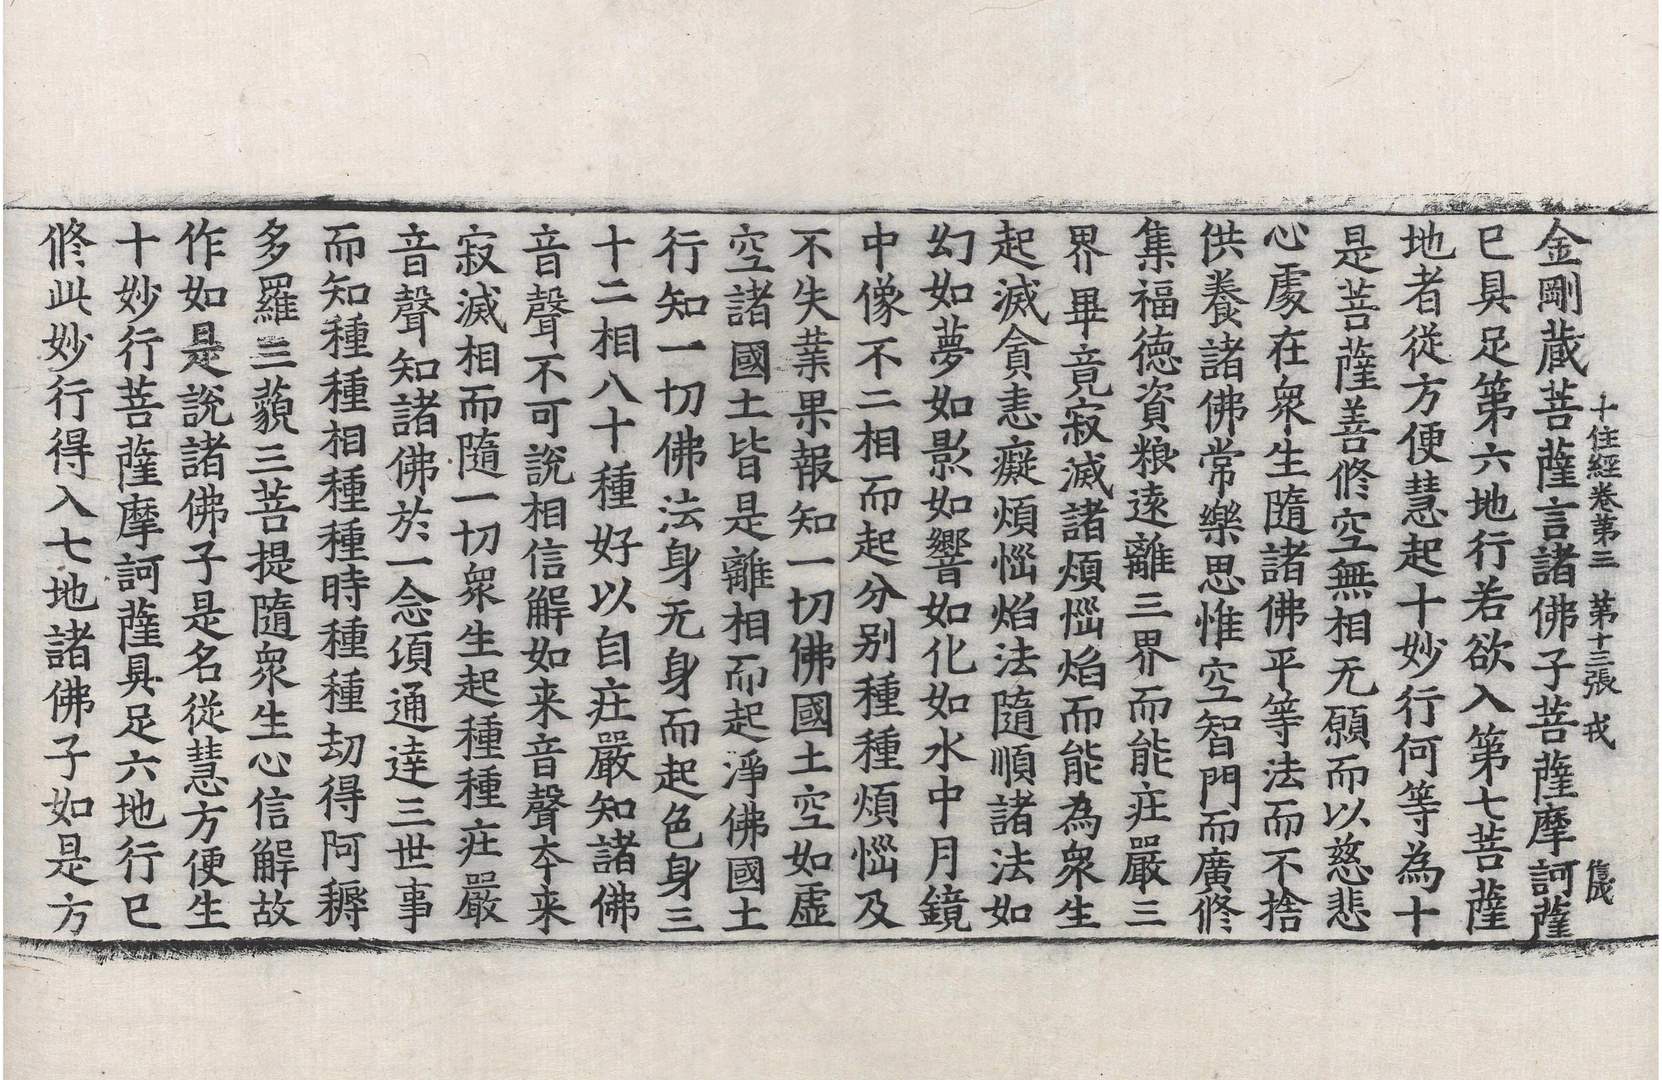 十住經卷第三　第十三張　戎
金剛蔵菩薩言諸佛子菩薩摩訶薩
已具足第六地行若欲入第七菩薩
地者從方便慧起十妙行何等為十
是菩薩善修空無相无願而以慈悲
心處在衆生隨諸佛平等法而不捨
供養諸佛常樂思惟空智門而廣修
集福德資粮遠離三界而能莊嚴三
界畢竟寂滅諸煩惱焰而能為衆生
起滅貪恚癡煩惱焰法隨順諸法如
幻如夢如影如響如化如水中月鏡
中像不二相而起分别種種煩惱及
不失業果報知一切佛國土空如虛
空諸國土皆是離相而起淨佛國土
行知一切佛法身无身而起色身三
十二相八十種好以自莊嚴知諸佛
音聲不可說相信解如来音聲夲来
寂滅相而隨一切衆生起種種莊嚴
音聲知諸佛於一念頃通達三世事
而知種種相種種時種種劫得阿耨
多羅三藐三菩提隨衆生心信解故
作如是說諸佛子是名從慧方便生
十妙行菩薩摩訶薩具足六地行已
修此妙行得入七地諸佛子如是方